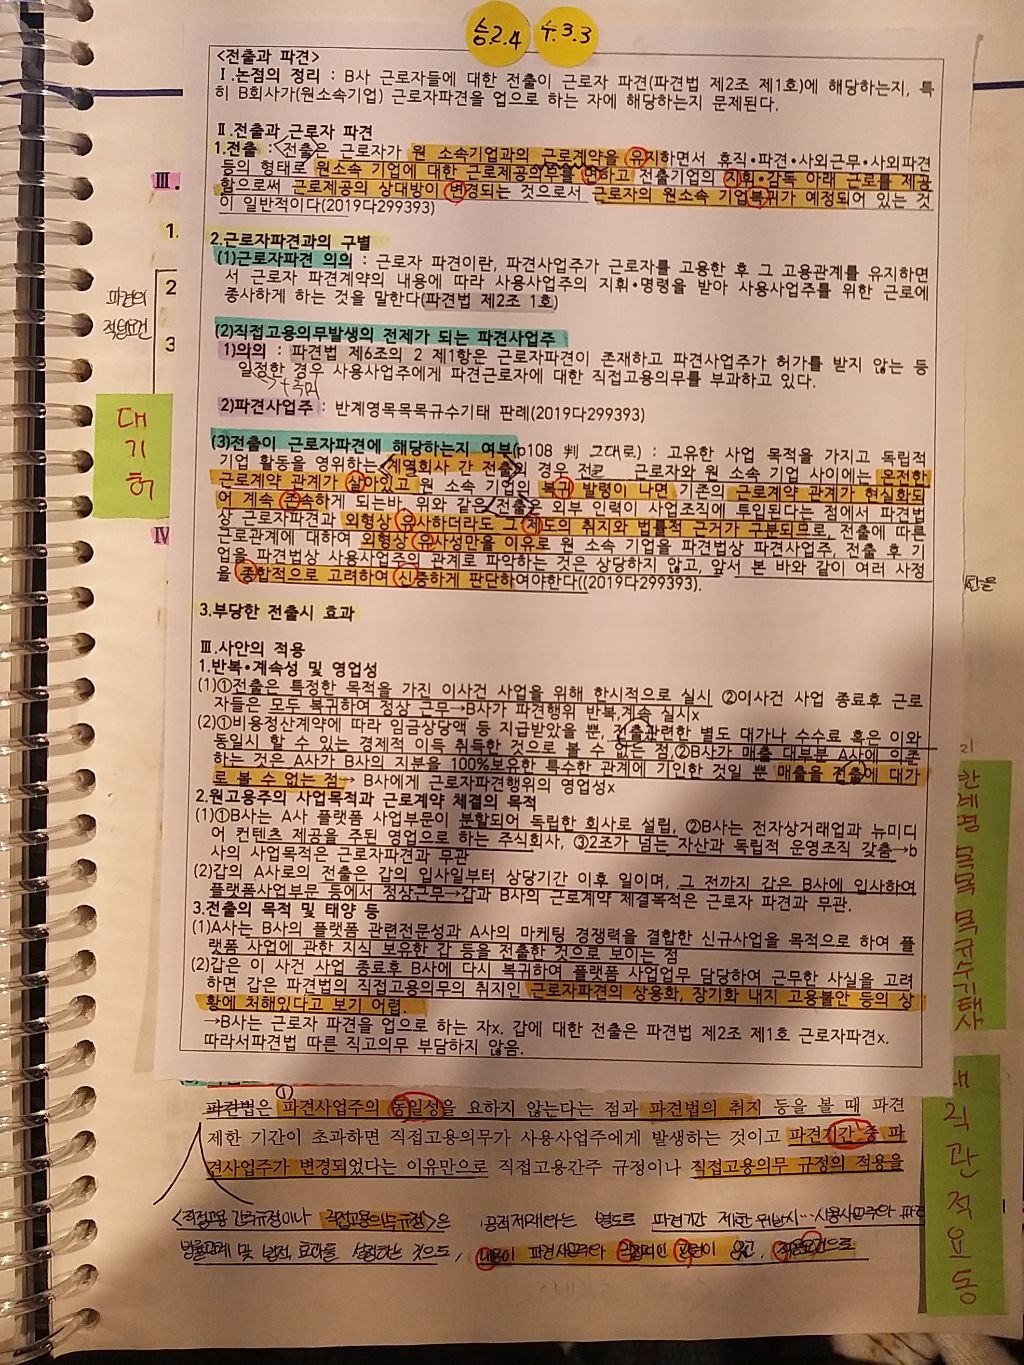 승.2.4 누.3.3
<전출과 파견>
Ⅰ.논점의 정리 : B사 근로자들에 대한 전출이 근로자 파견(파견법 제2조 제1호)에 해당하는지, 특
히 B회사가(원소속기업) 근로자파견을 업으로 하는 자에 해당하는지 문제된다.
Ⅱ.전출과 근로자 파견
1.전출 : 전출은 근로자가 원 소속기업과의 근로계약을 유지하면서 휴직•파견•사외근무•사외파견
등의 형태로 원소속 기업에 대한 근로제공의무를 면하고 전출기업의 지휘•감독 아래 근로를 제공
함으로써 근로제공의 상대방이 변경되는 것으로서 근로자의 원소속 기업복귀가 예정되어 있는 것
이 일반적이다(2019다299393)
Ⅲ.
1.
2.근로자파견과의 구별
(1)근로자파견 의의 : 근로자 파견이란, 파견사업주가 근로자를 고용한 후 그 고용관계를 유지하면
서 근로자 파견계약의 내용에 따라 사용사업주의 지휘•명령을 받아 사용사업주를 위한 근로에
종사하게 하는 것을 말한다(파견법 제2조 1호)
파견의
적용요건
2
3
(2)직접고용의무발생의 전제가 되는 파견사업주
1)의의 : 파견법 제6조의 2 제1항은 근로자파견이 존재하고 파견사업주가 허가를 받지 않는 등
일정한 경우 사용사업주에게 파견근로자에 대한 직접고용의무를 부과하고 있다.
2)파견사업주 : 반계영목목목규수기태 판례(2019다299393)
대
기
허
(3)전출이 근로자파견에 해당하는지 여부(p108 判 그대로) : 고유한 사업 목적을 가지고 독립적
기업 활동을 영위하는 계열회사 간 전출의 경우 전출 근로자와 원 소속 기업 사이에는 온전한
근로계약 관계가 살아있고 원 소속 기업의 복귀 발령이 나면 기존의 근로계약 관계가 현실화되
어 계속 존속하게 되는바 위와 같은 전출은 외부 인력이 사업조직에 투입된다는 점에서 파견법
상 근로자파견과 외형상 유사하더라도 그 제도의 취지와 법률적 근거가 구분되므로, 전출에 따른
근로관계에 대하여 외형상 유사성만을 이유로 원 소속 기업을 파견법상 파견사업주, 전출 후 기
업을 파견법상 사용사업주의 관계로 파악하는 것은 상당하지 않고, 앞서 본 바와 같이 여러 사정
을 종합적으로 고려하여 신중하게 판단하여야한다((2019다299393).
Ⅳ
3.부당한 전출시 효과
Ⅲ.사안의 적용
1.반복•계속성 및 영업성
(1)①전출은 특정한 목적을 가진 이사건 사업을 위해 한시적으로 실시 ②이사건 사업 종료후 근로
자들은 모두 복귀하여 정상 근무→B사가 파견행위 반복,계속 실시x
(2)①비용정산계약에 따라 임금상당액 등 지급받았을 뿐, 전출관련한 별도 대가나 수수료 혹은 이와
동일시 할 수 있는 경제적 이득 취득한 것으로 볼 수 없는 점,②B사가 매출 대부분 A사에 의존
하는 것은 A사가 B사의 지분을 100%보유한 특수한 관계에 기인한 것일 뿐 매출을 전출에 대가
로 볼 수 없는 점→ B사에게 근로자파견행위의 영업성x
2.원고용주의 사업목적과 근로계약 체결의 목적
(1)①B사는 A사 플랫폼 사업부문이 분할되어 독립한 회사로 설립, ②B사는 전자상거래업과 뉴미디
어 컨텐츠 제공을 주된 영업으로 하는 주식회사, ③2조가 넘는 자산과 독립적 운영조직 갖춤→b
사의 사업목적은 근로자파견과 무관
(2)갑의 A사로의 전출은 갑의 입사일부터 상당기간 이후 일이며, 그 전까지 갑은 B사에 입사하여
플랫폼사업부문 등에서 정상근무→갑과 B사의 근로계약 체결목적은 근로자 파견과 무관.
3.전출의 목적 및 태양 등
(1)A사는 B사의 플랫폼 관련전문성과 A사의 마케팅 경쟁력을 결합한 신규사업을 목적으로 하여 플
랫폼 사업에 관한 지식 보유한 갑 등을 전출한 것으로 보이는 점
(2)갑은 이 사건 사업 종료후 B사에 다시 복귀하여 플랫폼 사업업무 담당하여 근무한 사실을 고려
하면 갑은 파견법의 직접고용의무의 취지인 근로자파견의 상용화, 장기화 내지 고용불안 등의 상
황에 처해있다고 보기 어렵.
→B사는 근로자 파견을 업으로 하는 자x. 갑에 대한 전출은 파견법 제2조 제1호 근로자파견x.
따라서파견법 따른 직고의무 부담하지 않음.
파견법은 ①파견사업주의 동일성을 요하지 않는다는 점과 파견법의 취지 등을 볼 때 파견
제한 기간이 초과하면 직접고용의무가 사용사업주에게 발생하는 것이고 파견기간 중 파
견사업주가 변경되었다는 이유만으로 직접고용간주 규정이나 직접고용의무 규정의 적용을
<직접고용 간주규정이나 직접고용의무규정>은 공적제재와는 별도로 파견기간 제한 위반시…사용사업주와 파견
법률관계 및 법적 효과를 설정하는 것으로, 내용이 파견사업주와 직접적인 관련이 없고, 적용요건으로
직
관
적
요
동